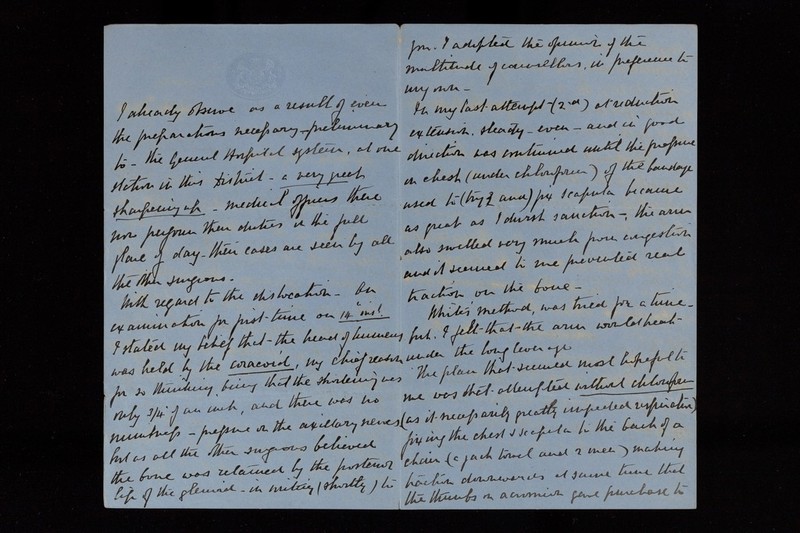 I already observe as a result of even
the preparations necessary - preliminary
to - the General Hospital system, at one
station in this District - a very great
sharpening up - medical officers there
now perform their duties in the full
glare of day - their cases are seen by all
the other surgeons.
With regard to the dislocation - An
examination for first time on 14th inst.
I stated my belief that - the head of humerus
was held by the coracoid, my chief reason
for so thinking being that the shortening was
only 3/4 of an inch, and there was no
numbness - pressure on the axillary nerves
but as all the other surgeons believed
the bone was retained by the posterior
lip of the glenoid - in writing (shortly) to
you. I adopted the opinion of the
multitude of councillors, in preference to
my own -
In my last attempt - (2nd) at reduction
extension, steady - even - and in good
direction was continued until the pressure
on chest (under chloroform) of the bandage
used to (try & and) fix scapula became
as great as I durst sanction - the arm
also swelled very much from congestion
and it seemed to me prevented real
traction on the bone -
White's method, was tried for a time -
but I felt that the arm would break -
under the long leverage
The plan that seemed most hopeful to
me was that attempted without chloroform
(as it necessarily greatly impeded respiration)
fixing the chest & scapula to the back of a
chair (a jack towel and 2 men) making
traction downwards at same time that
the thumbs on acromion gave purchase to